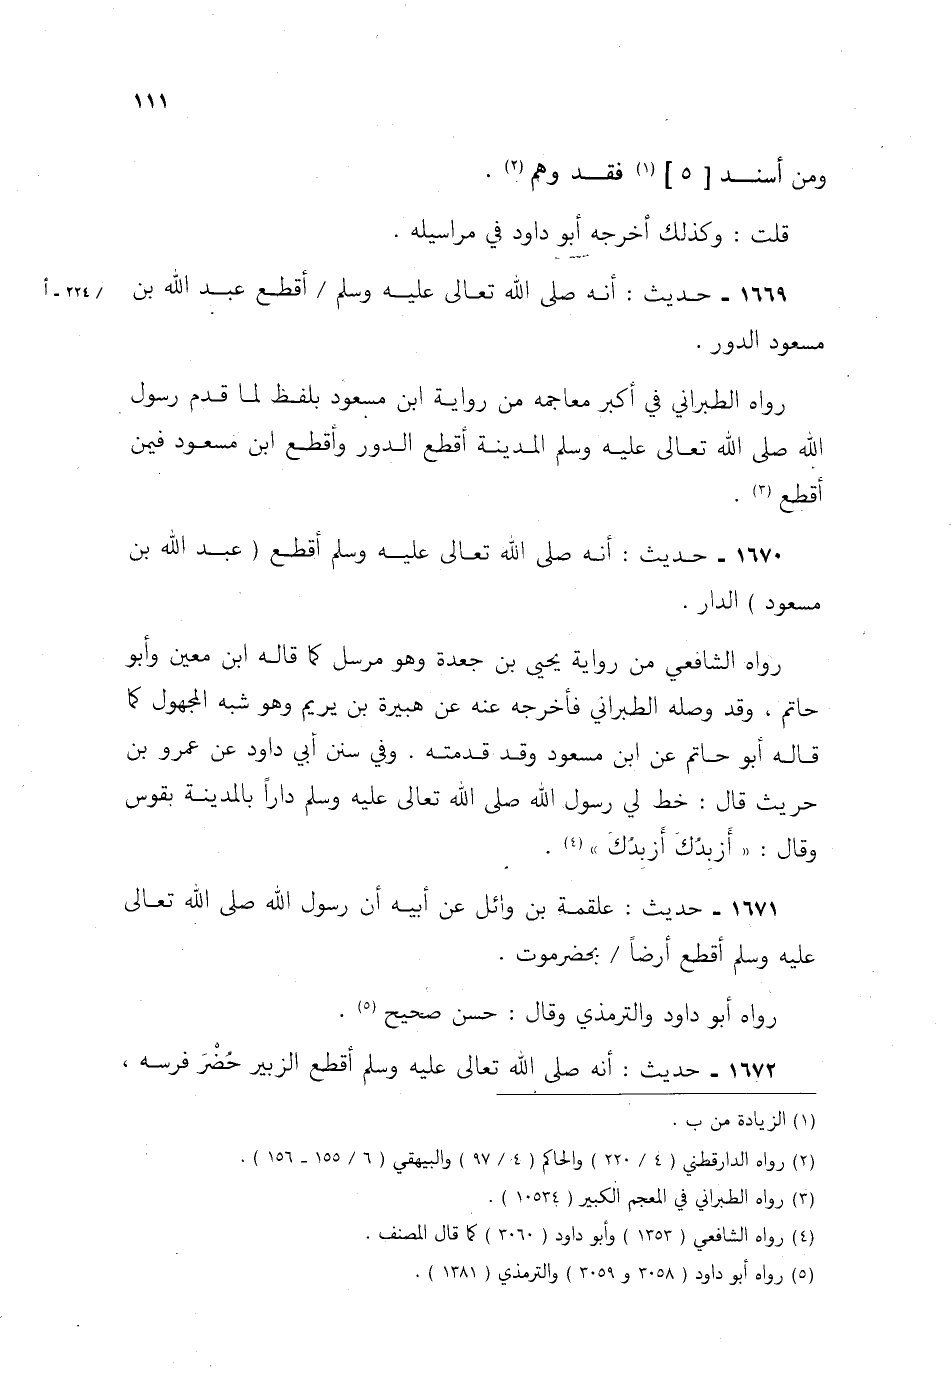 ١١١
ومن أسنـــد [ ٥ ] (١) فقـــد وهم (٢) .
قلت : وكذلك أخرجه أبو داود في مراسيله .
١٦٦٩ ـ حديث : أنه صلى الله تعالى عليه وسلم / أقطع عبد الله بن / ٢٢٤ ـ أ
مسعود الدور .
رواه الطبراني في أكبر معاجمه من رواية ابن مسعود بلفظ لما قدم رسول
الله صلى الله تعالى عليه وسلم المدينة أقطع الدور وأقطع ابن مسعود فيمن
أقطع (٣) .
١٦٧٠ ـ حديث : أنه صلى الله تعالى عليه وسلم أقطع ( عبد الله بن
مسعود ) الدار .
رواه الشافعي من رواية يحيى بن جعدة وهو مرسل كما قاله ابن معين وأبو
حاتم ، وقد وصله الطبراني فأخرجه عنه عن هبيرة بن يريم وهو شبه المجهول كما
قاله أبو حاتم عن ابن مسعود وقد قدمته . وفي سنن أبي داود عن عمرو بن
حريث قال : خط لي رسول الله صلى الله تعالى عليه وسلم داراً بالمدينة بقوس
وقال : « أَزيدُكَ أَزيدُكَ » (٤) .
١٦٧١ ـ حديث : علقمة بن وائل عن أبيه أن رسول الله صلى الله تعالى
عليه وسلم أقطع أرضاً / بحضرموت .
رواه أبو داود والترمذي وقال : حسن صحيح (٥) .
١٦٧٢ ـ حديث : أنه صلى الله تعالى عليه وسلم أقطع الزبير حُضْرَ فرسه ،
(١) الزيادة من ب .
(٢) رواه الدارقطني ( ٤ / ٢٢٠ ) والحاكم ( ٤ / ٩٧ ) والبيهقي ( ٦ / ١٥٥ ـ ١٥٦ ) .
(٣) رواه الطبراني في المعجم الكبير ( ١٠٥٣٤ ) .
(٤) رواه الشافعي ( ١٣٥٣ ) وأبو داود ( ٣٠٦٠ ) كما قال المصنف .
(٥) رواه أبو داود ( ٣٠٥٨ و ٣٠٥٩ ) والترمذي ( ١٣٨١ ) .